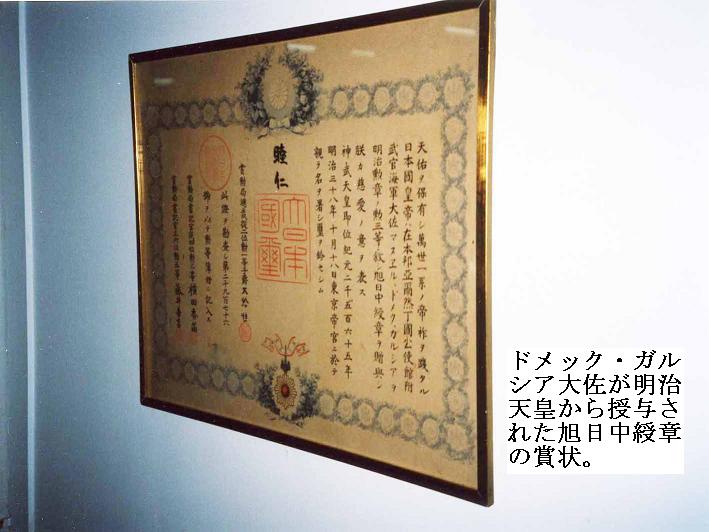 天佑ヲ保有シ萬世一系ノ帝祚ヲ踐タル
日本國皇帝ハ在本邦亞爾然丁國公使館附
武官海軍大佐マヌエル、ドメクガルシアヲ
明治勲章ノ勲三等ニ叙シ旭日中綬章ヲ贈與シ
朕カ慈愛ノ意ヲ表ス
神武天皇即位紀元二千五百六十五年
明治三十八年十月十八日東京帝宮ニ於テ
親ラ名ヲ署シ璽ヲ鈐セシム
睦仁
大日本
國璽
此證ヲ勘査シ第二千九百七十六
號ヲ以テ勲等簿冊ニ記入ス
ドメック・ガル
シア大佐が明治
天皇から授与さ
れた旭日中綬章
の賞状。